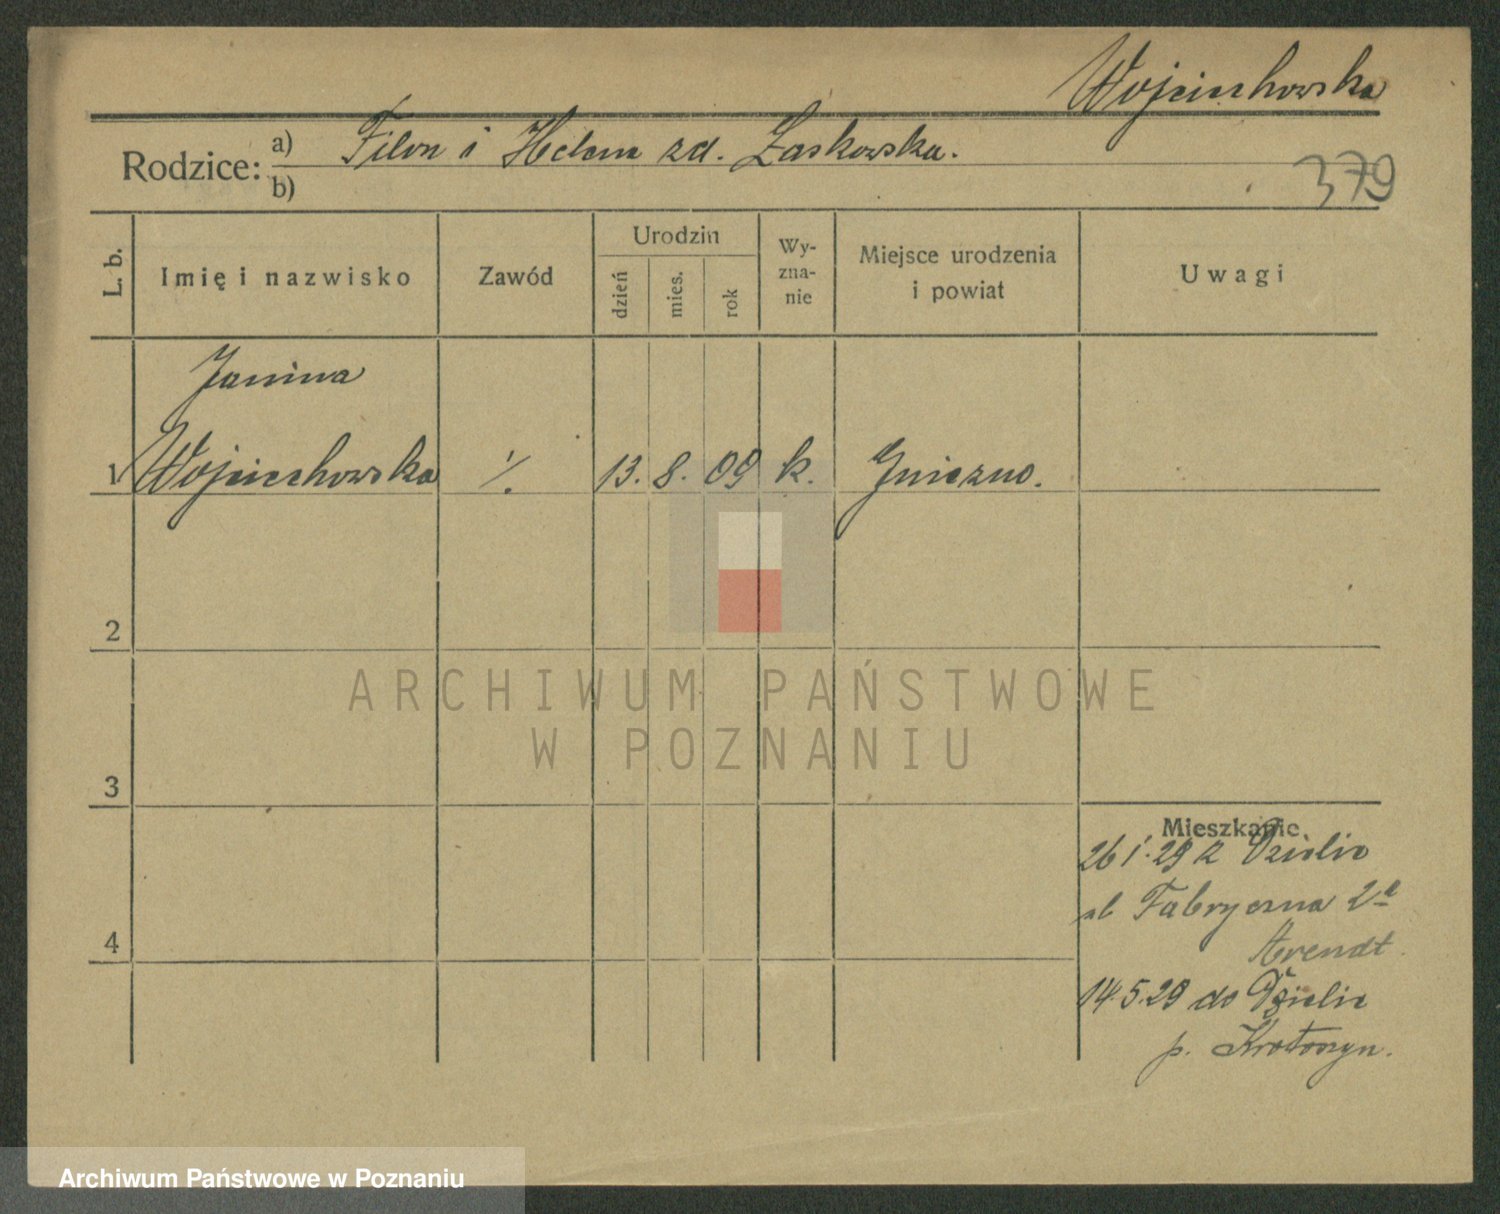 Wojciechowska
Rodzice: a) Filon i Helena zd. Laskowska.
b)
379
L. b.
Imię i nazwisko
Zawód
Urodzin
dzień
mies.
rok
Wy-
zna-
nie
Miejsce urodzenia
i powiat
Uwagi
Janina
1 Wojciechowska ./. 13. 8. 09 k. Gniezno.
2
ARCHIWUM PAŃSTWOWE
W POZNANIU
3
Mieszkanie
26 1. 29 z Dzielic
ul Fabryczna 2a
4
Arendt.
14.5.29 do Dzielic
p. Krotoszyn.
Archiwum Państwowe w Poznaniu